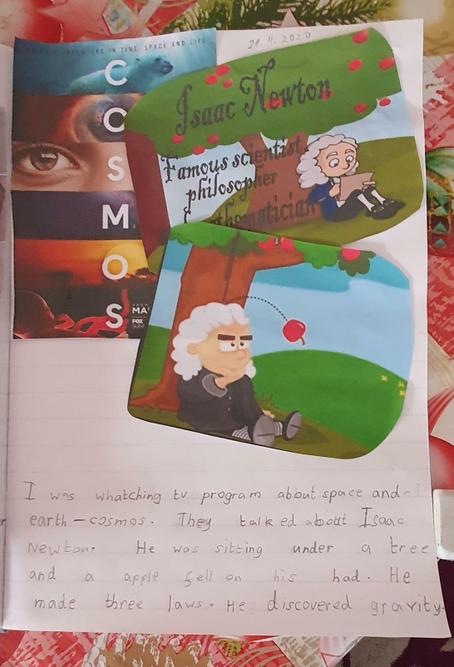 21. 4. 2020
TIME, SPACE AND LIFE
COSMOS
FOX
Isaac Newton
Famous scientist,
philosopher
I was whatching tv program about space and
earth – cosmos. They talked about Isaac
Newton. He was sitting under a tree
and a apple fell on his had. He
made three laws. He discovered gravity.